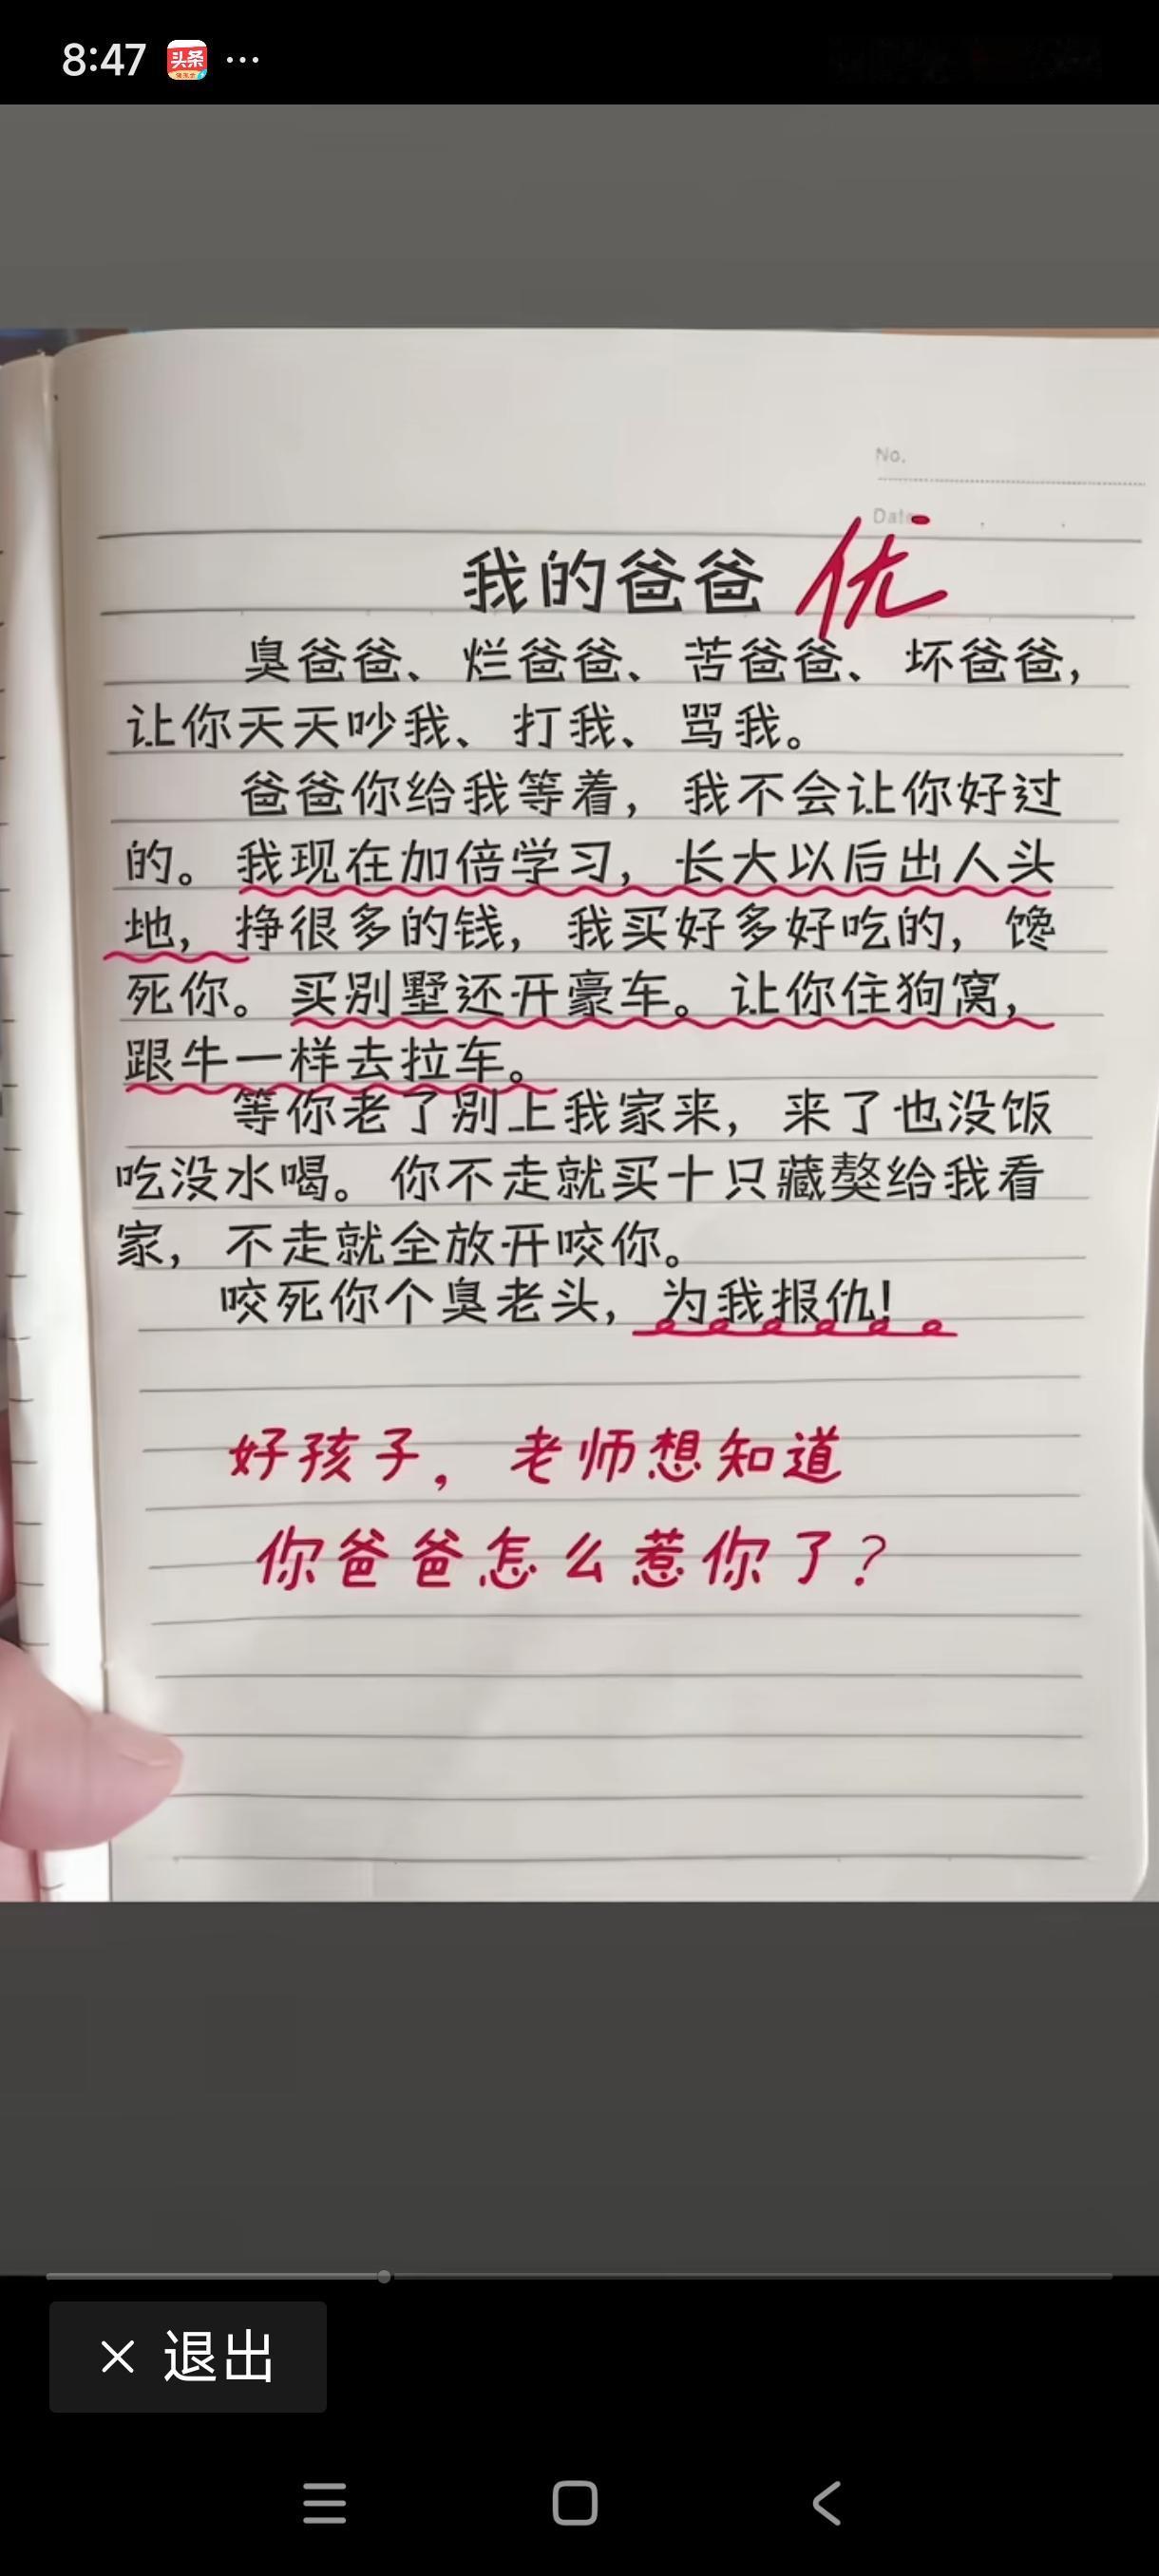 8:47 头条 ...
No.
Date
我的爸爸 优
臭爸爸、烂爸爸、苦爸爸、坏爸爸，
让你天天吵我、打我、骂我。
爸爸你给我等着，我不会让你好过
的。我现在加倍学习，长大以后出人头
地，挣很多的钱，我买好多好吃的，馋
死你。买别墅还开豪车。让你住狗窝，
跟牛一样去拉车。
等你老了别上我家来，来了也没饭
吃没水喝。你不走就买十只藏獒给我看
家，不走就全放开咬你。
咬死你个臭老头，为我报仇！
好孩子，老师想知道
你爸爸怎么惹你了？
× 退出